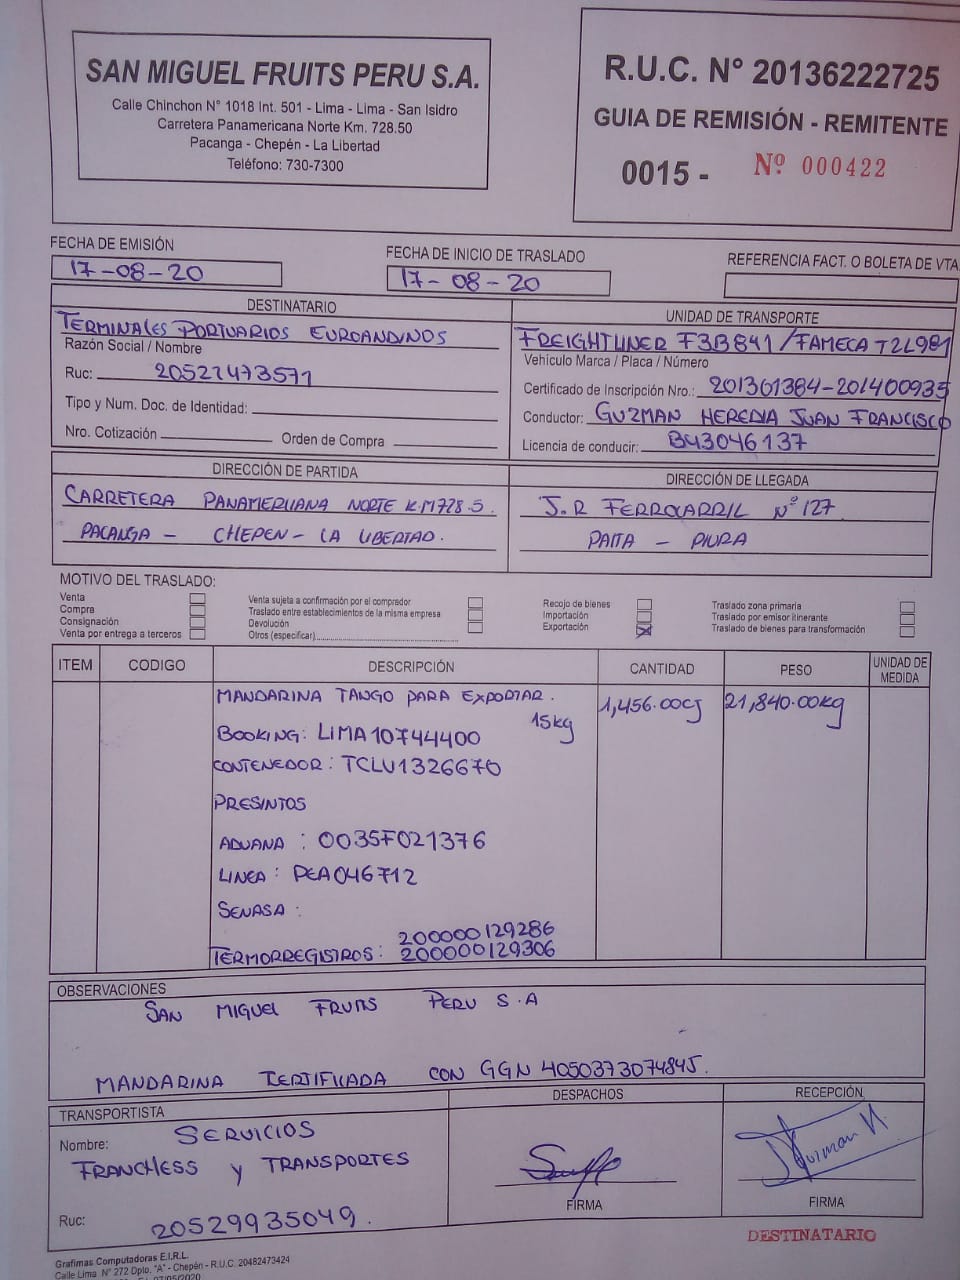 SAN MIGUEL FRUITS PERU S.A.
Calle Chinchon N° 1018 Int. 501 - Lima - Lima - San Isidro
Carretera Panamericana Norte Km. 728.50
Pacanga - Chepén - La Libertad
Teléfono: 730-7300
R.U.C. N° 20136222725
GUIA DE REMISIÓN - REMITENTE
0015 - Nº 000422
FECHA DE EMISIÓN
17-08-20
FECHA DE INICIO DE TRASLADO
17-08-20
REFERENCIA FACT. O BOLETA DE VTA.
DESTINATARIO
TERMINALES PORTUARIOS EUROANDINOS
Razón Social / Nombre
Ruc: 20521473571
Tipo y Num. Doc. de Identidad:
Nro. Cotización Orden de Compra
UNIDAD DE TRANSPORTE
FREIGHTLINER F3B841/FAMECA T2L981
Vehículo Marca / Placa / Número
Certificado de Inscripción Nro.: 201361384-201400935
Conductor: GUZMAN HEREDIA JUAN FRANCISCO
Licencia de conducir: B43046137
DIRECCIÓN DE PARTIDA
CARRETERA PANAMERICANA NORTE K.M728.5.
PACANGA - CHEPEN - LA LIBERTAD.
DIRECCIÓN DE LLEGADA
J.R FERROCARRIL Nº127
PAITA - PIURA
MOTIVO DEL TRASLADO:
Venta
Compra
Consignación
Venta por entrega a terceros
Venta sujeta a confirmación por el comprador
Traslado entre establecimientos de la misma empresa
Devolución
Otros (especificar)
Recojo de bienes
Importación
Exportación X
Traslado zona primaria
Traslado por emisor itinerante
Traslado de bienes para transformación
ITEM CODIGO DESCRIPCIÓN CANTIDAD PESO UNIDAD DE MEDIDA
MANDARINA TANGO PARA EXPORTAR. 1,456.00cj 21,840.00kg
15kg
BOOKING: LIMA10744400
CONTENEDOR: TCLU1326670
PRESINTOS
ADUANA : 0035F021376
LINEA : PEA046712
SENASA :
200000129286
TERMORREGISTROS: 200000129306
OBSERVACIONES
SAN MIGUEL FRUITS PERU S.A
MANDARINA CERTIFICADA CON GGN 4050373074845.
TRANSPORTISTA
Nombre: SERVICIOS
FRANCHESS Y TRANSPORTES
Ruc: 20529935049.
DESPACHOS
FIRMA
RECEPCIÓN
FIRMA
DESTINATARIO
Grafimas Computadoras E.I.R.L.
Calle Lima N° 272 Dpto. "A" - Chepén - R.U.C. 20482473424
07/05/2020